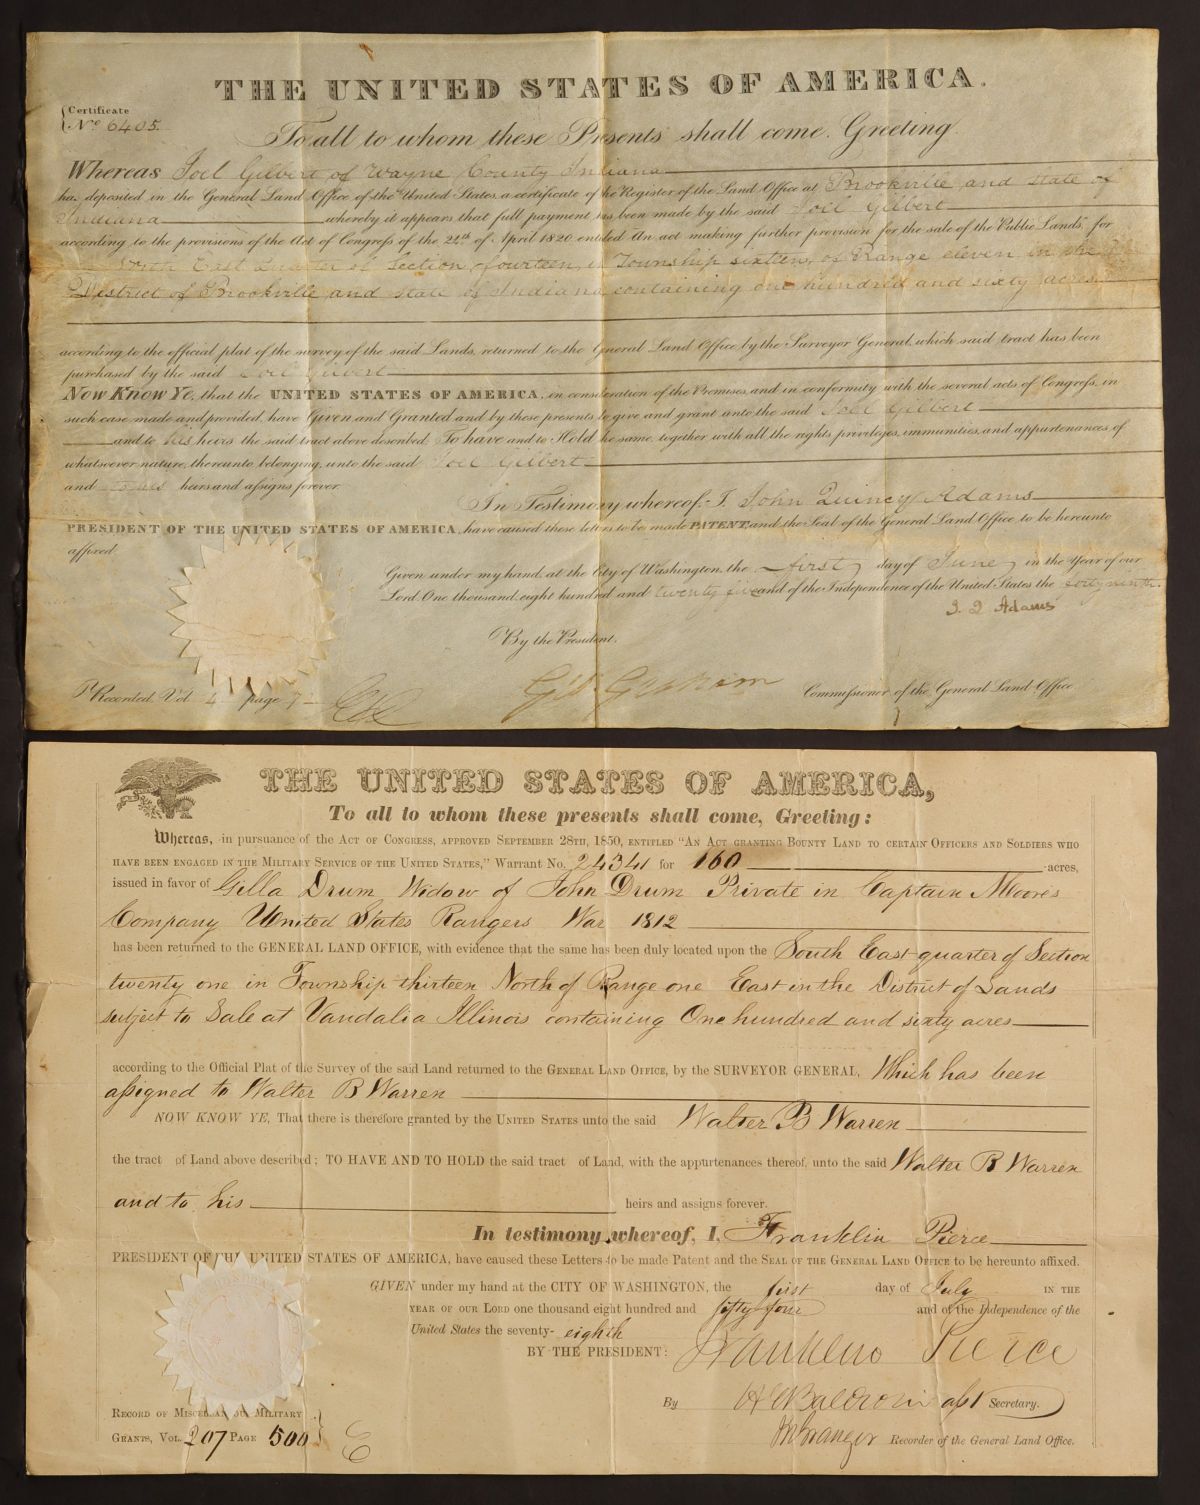 THE UNITED STATES OF AMERICA.
Certificate
No 6405.
To all to whom these Presents shall come. Greeting
Whereas Joel Gilbert of Wayne County Indiana
has deposited in the General Land Office of the United States, a certificate of the Register of the Land Office at Brookville and State of
Indiana whereby it appears that full payment has been made by the said Joel Gilbert
according to the provisions of the Act of Congress of the 24th of April 1820, entitled An act making further provision for the sale of the Public Lands, for
East Quarter of Section fourteen, in Township sixteen, of Range eleven in the
District of Brookville and State of Indiana containing one hundred and sixty acres
according to the official plat of the survey of the said Lands, returned to the General Land Office by the Surveyor General, which said tract has been
purchased by the said Joel Gilbert
Now Know Ye, that the UNITED STATES OF AMERICA, in consideration of the Premises, and in conformity with the several acts of Congress, in
such case made and provided, have Given and Granted and by these presents to give and grant unto the said Joel Gilbert
and to his heirs the said tract above described To have and to Hold the same, together with all the rights, privileges, immunities, and appurtenances of
whatsoever nature, thereunto belonging, unto the said Joel Gilbert
and to his heirs and assigns forever.
In Testimony whereof, I, John Quincy Adams
PRESIDENT OF THE UNITED STATES OF AMERICA, have caused these letters to be made PATENT, and the Seal of the General Land Office to be hereunto
affixed.
Given under my hand, at the City of Washington, the first day of June in the Year of our
Lord One thousand, eight hundred and twenty five and of the Independence of the United States the forty ninth
J. Q Adams
By the President.
Recorded Vol 4 page Commissioner of the General Land Office
THE UNITED STATES OF AMERICA,
To all to whom these presents shall come, Greeting:
Whereas, in pursuance of the Act of Congress, approved September 28th, 1850, entitled "An Act granting Bounty Land to certain Officers and Soldiers who
have been engaged in the Military Service of the United States," Warrant No. 24341 for 160 acres,
issued in favor of Gilla Drum Widow of John Drum Private in Captain Moore's
Company United States Rangers War 1812
has been returned to the GENERAL LAND OFFICE, with evidence that the same has been duly located upon the South East quarter of Section
twenty one in Township thirteen North of Range one East in the District of Lands
subject to Sale at Vandalia Illinois containing One hundred and sixty acres
according to the Official Plat of the Survey of the said Land returned to the General Land Office, by the SURVEYOR GENERAL, Which has been
assigned to Walter B Warren
NOW KNOW YE, That there is therefore granted by the United States unto the said Walter B Warren
the tract of Land above described; TO HAVE AND TO HOLD the said tract of Land, with the appurtenances thereof, unto the said Walter B Warren
and to his heirs and assigns forever.
In testimony whereof, I, Franklin Pierce
PRESIDENT OF THE UNITED STATES OF AMERICA, have caused these Letters to be made Patent and the Seal of the General Land Office to be hereunto affixed.
GIVEN under my hand at the CITY OF WASHINGTON, the first day of July IN THE
YEAR OF OUR Lord one thousand eight hundred and fifty four and of the Independence of the
United States the seventy-eighth
BY THE PRESIDENT: Franklin Pierce
By H E Baldwin asst Secretary.
Record of Miscellaneous Military
Grants, Vol. 207 Page 500 J N Granger Recorder of the General Land Office.